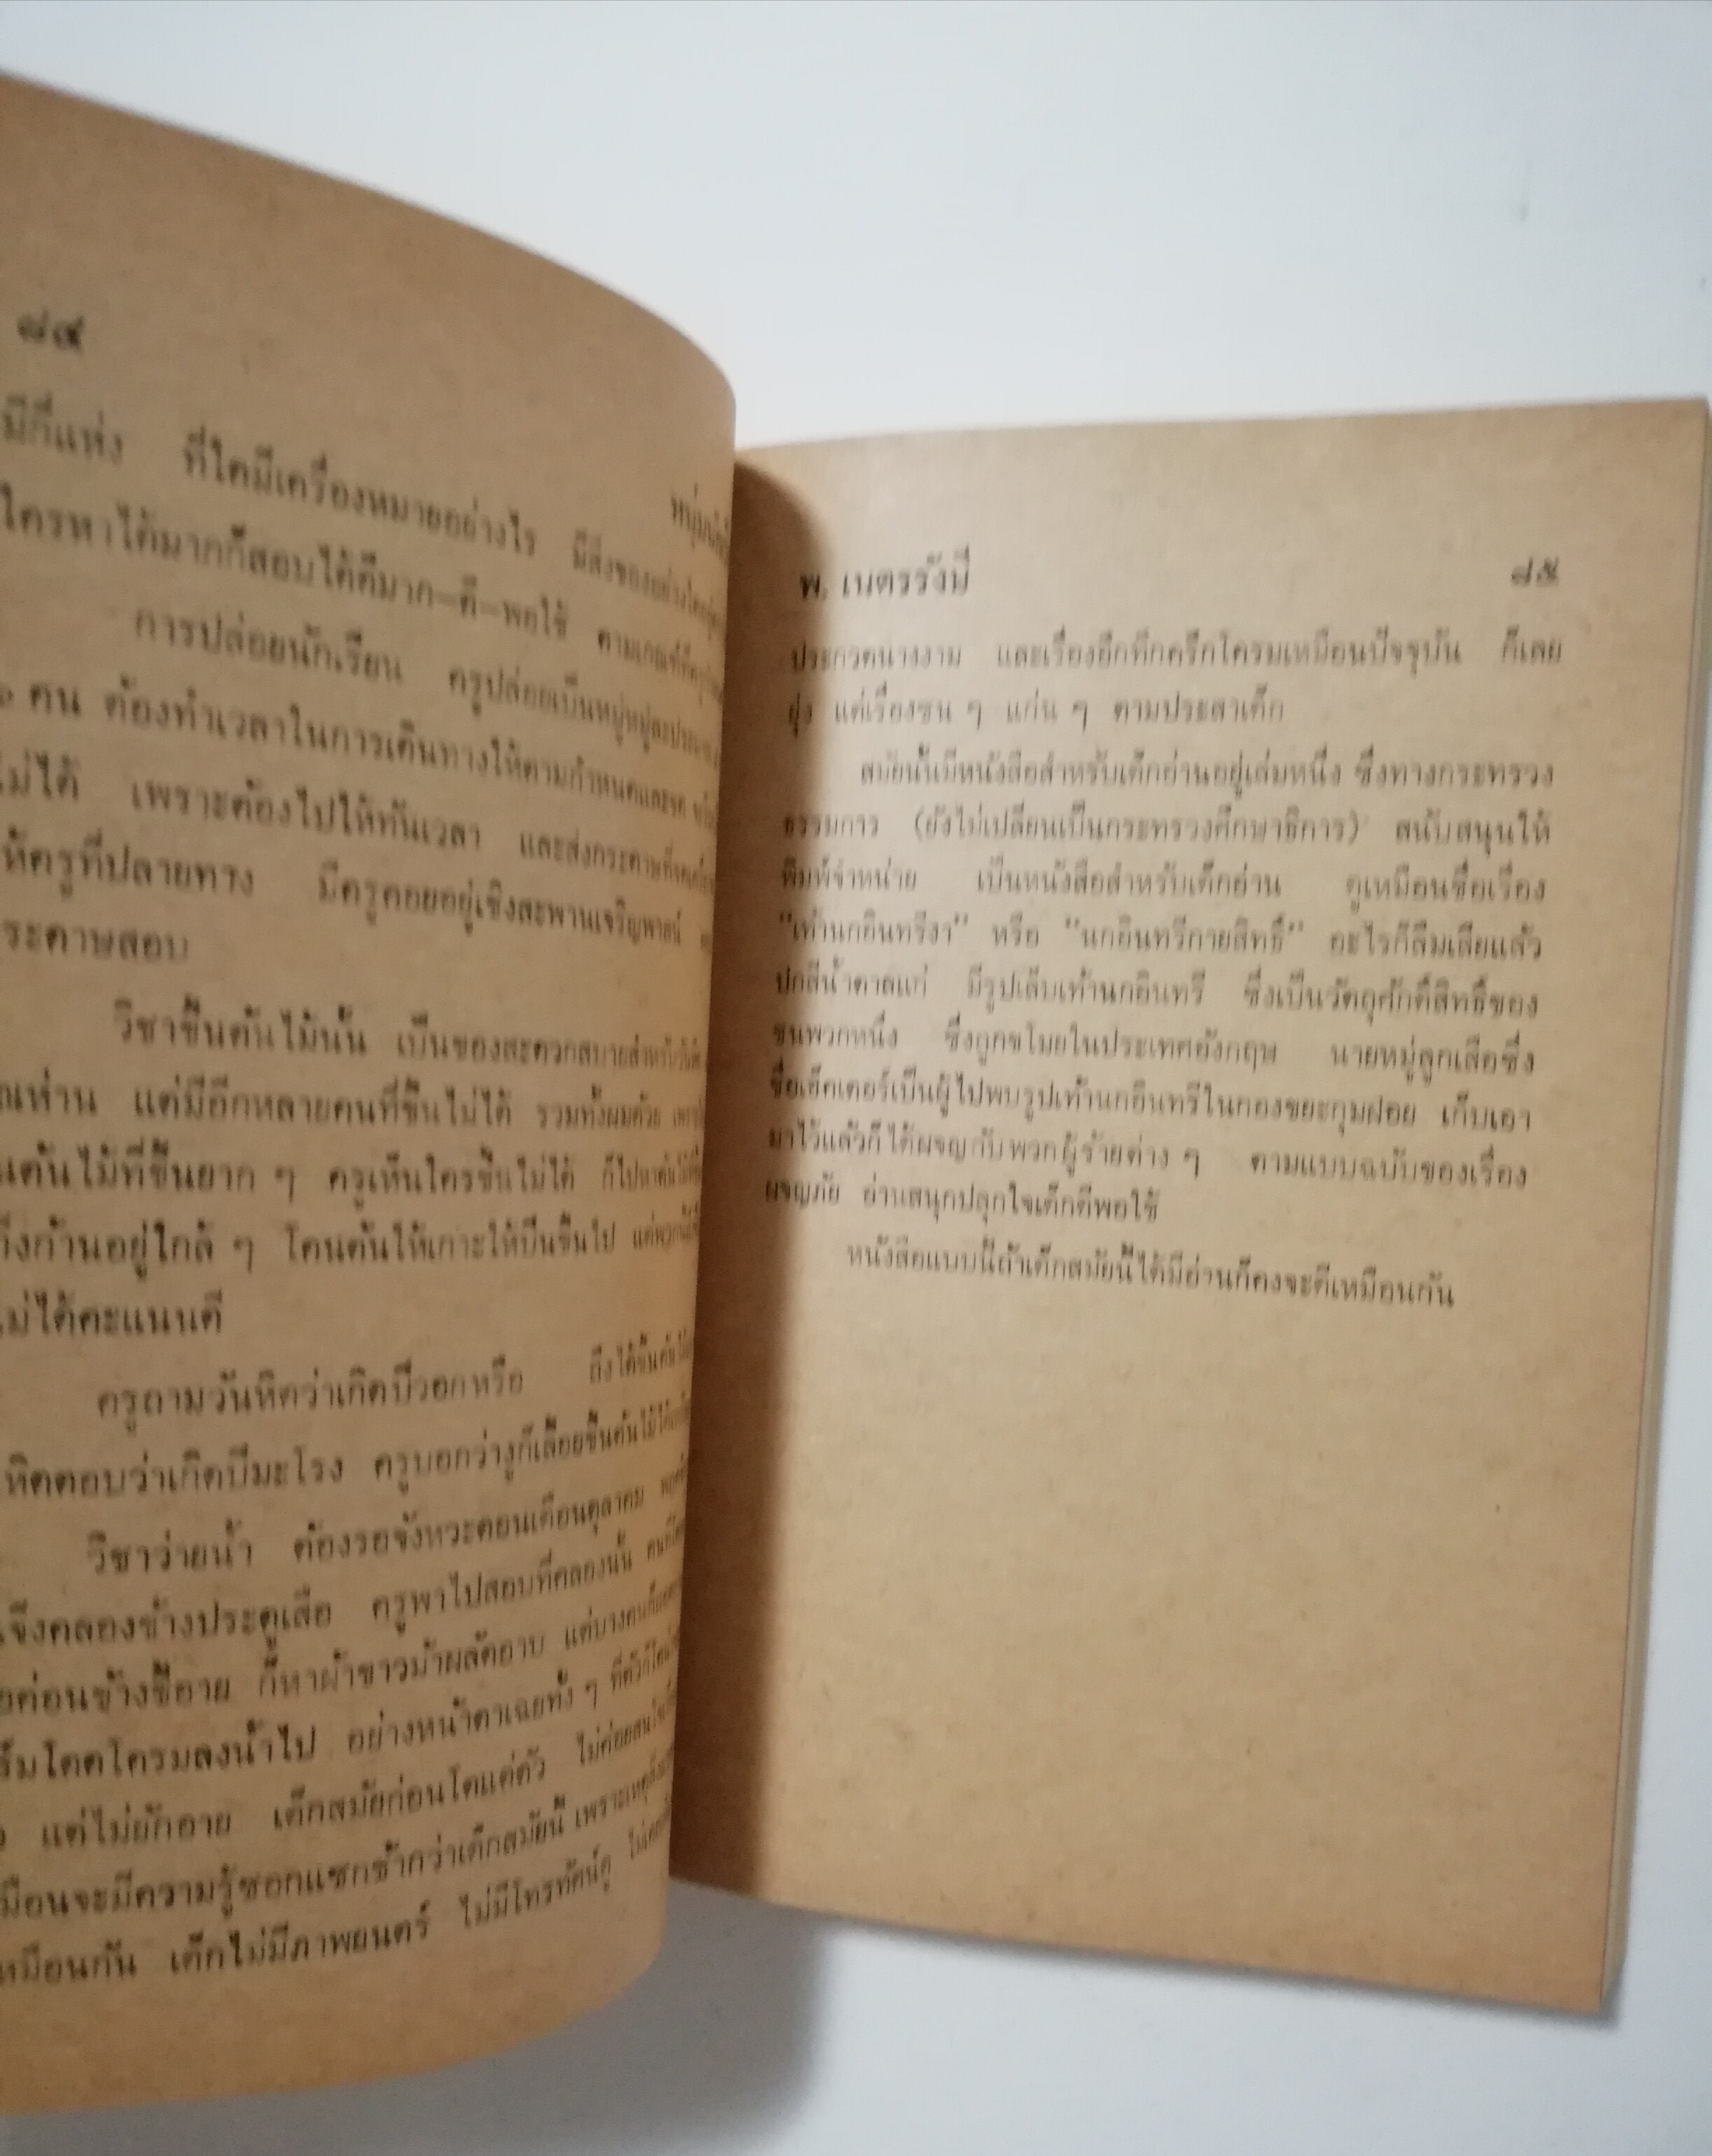 ๘๔
มีกี่แห่ง ที่ใดมีเครื่องหมายอย่างไร มีสิ่งของอย่างใด
ใครหาได้มากก็สอบได้ดีมาก—ดี—พอใช้
การปล่อยนักเรียน ครูปล่อยเป็นหมู่หมู่ละ
คน ต้องทำเวลาในการเดินทางให้ตามกำหนด
ไม่ได้ เพราะต้องไปให้ทันเวลา และส่งกระดาษ
ให้ครูที่ปลายทาง มีครูคอยอยู่เชิงสะพานเจริญพาศน์
กระดาษสอบ
วิชาขึ้นต้นไม้นั้น เป็นของสะดวกสบายสำหรับ
แต่มีอีกหลายคนที่ขึ้นไม่ได้ รวมทั้งผมด้วย
ต้นไม้ที่ขึ้นยาก ๆ ครูเห็นใครขึ้นไม่ได้ ก็ไปหา
กิ่งก้านอยู่ใกล้ ๆ โคนต้นให้เกาะให้ปีนขึ้นไป
ไม่ได้คะแนนดี
ครูถามวันหิดว่าเกิดปีวอกหรือ ถึงได้ขึ้น
หิดตอบว่าเกิดปีมะโรง ครูบอกว่างูก็เลื้อยขึ้นต้นไม้ได้
วิชาว่ายน้ำ ต้องรอจังหวะตอนเดือนตุลาคม
เจิ่งคลองข้างประตูเสือ ครูพาไปสอบที่คลองนั้น
ค่อนข้างขี้อาย ก็หาผ้าขาวม้าผลัดอาบ แต่บางคน
โดดโครมลงน้ำไป อย่างหน้าตาเฉยทั้ง ๆ ที่ตัวก็โต
แต่ไม่ยักอาย เด็กสมัยก่อนโตแต่ตัว ไม่ค่อย
เหมือนจะมีความรู้ซอกแซกช้ากว่าเด็กสมัยนี้ เพราะเหตุ
เหมือนกัน เด็กไม่มีภาพยนตร์ ไม่มีโทรทัศน์ดู
พ. เนตรรังษี ๘๕
ประกวดนางงาม และเรื่องอึกทึกครึกโครมเหมือนปัจจุบัน ก็เลย
ยุ่ง แต่เรื่องซน ๆ แก่น ๆ ตามประสาเด็ก
สมัยนั้นมีหนังสือสำหรับเด็กอ่านอยู่เล่มหนึ่ง ซึ่งทางกระทรวง
ธรรมการ (ยังไม่เปลี่ยนเป็นกระทรวงศึกษาธิการ) สนับสนุนให้
พิมพ์จำหน่าย เป็นหนังสือสำหรับเด็กอ่าน ดูเหมือนชื่อเรื่อง
“เท้านกอินทรีงา” หรือ “นกอินทรีกายสิทธิ์” อะไรก็ลืมเสียแล้ว
ปกสีน้ำตาลแก่ มีรูปเล็บเท้านกอินทรี ซึ่งเป็นวัตถุศักดิ์สิทธิ์ของ
ชนพวกหนึ่ง ซึ่งถูกขโมยในประเทศอังกฤษ นายหมู่ลูกเสือซึ่ง
ชื่อเฮ็คเตอร์เป็นผู้ไปพบรูปเท้านกอินทรีในกองขยะกุมฝอย เก็บเอา
มาไว้แล้วก็ได้ผจญกับพวกผู้ร้ายต่าง ๆ ตามแบบฉบับของเรื่อง
ผจญภัย อ่านสนุกปลุกใจเด็กดีพอใช้
หนังสือแบบนี้ถ้าเด็กสมัยนี้ได้มีอ่านก็คงจะดีเหมือนกัน